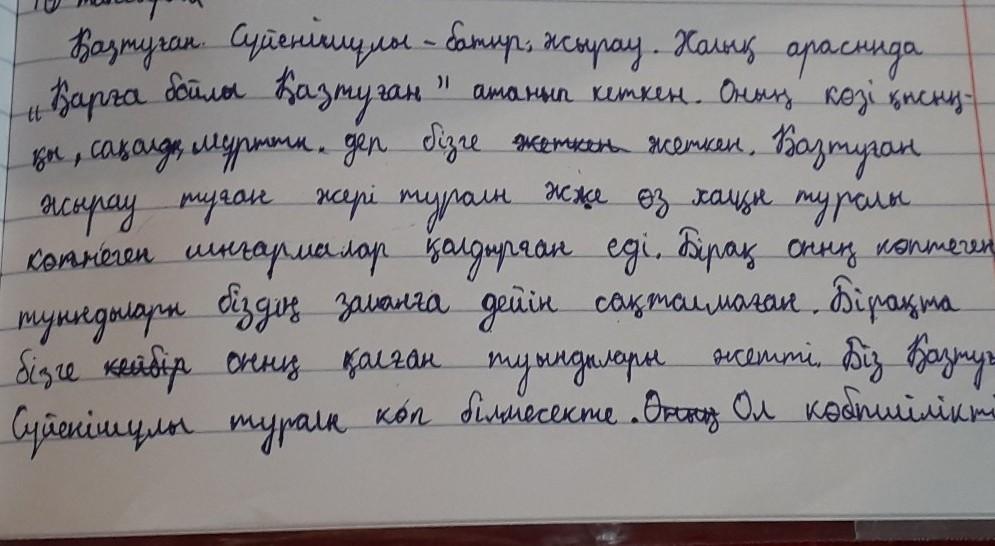 Қазтуған. Сүйенішұлы – батыр, жырау. Халық арасында
„Қарға бойлы Қазтуған" атанып кеткен. Оның көзі қысың-
қы, сақалды, мұртты. деп бізге жеткен жеткен. Қазтуған
жырау туған жері туралы және өз халқы туралы
көптеген шығармалар қалдырған еді. Бірақ оның көптеген
туындылары біздің заманға дейін сақталмаған. Бірақта
бізге кейбір оның қалған туындылары жетті. Біз Қазтуғ
Сүйенішұлы туралы көп білмесекте. Оның Ол көбшілікті